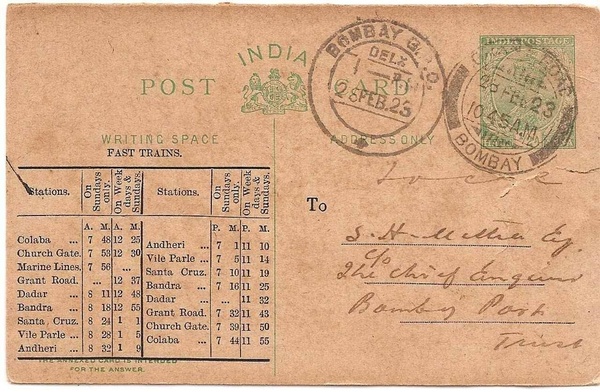 INDIA
POST CARD
WRITING SPACE
ADDRESS ONLY
INDIA POSTAGE
BOMBAY G.P.O.
DELY
28 FEB. 23
28 FEB 23
10.45 A.M.
BOMBAY
FAST TRAINS.
Stations. On Sundays only. On Week days & Sundays. Stations. On Sundays only. On Week days & Sundays.
A. M. A. M. P. M. P. M.
Colaba ... 7 48 12 25
Church Gate. 7 53 12 30
Marine Lines. 7 56 ...
Grant Road. ... 12 37
Dadar ... 8 11 12 48
Bandra ... 8 18 12 55
Santa Cruz. 8 24 1 1
Vile Parle ... 8 28 1 5
Andheri ... 8 32 1 9
Andheri ... 7 1 11 10
Vile Parle ... 7 5 11 14
Santa Cruz. 7 10 11 19
Bandra ... 7 16 11 25
Dadar ... ... 11 32
Grant Road. 7 32 11 43
Church Gate. 7 39 11 50
Colaba ... 7 44 11 55
THE ANNEXED CARD IS INTENDED
FOR THE ANSWER.
To
S. H. Mehta Esq.
C/o
The Chief Engineer
Bombay Port
Trust